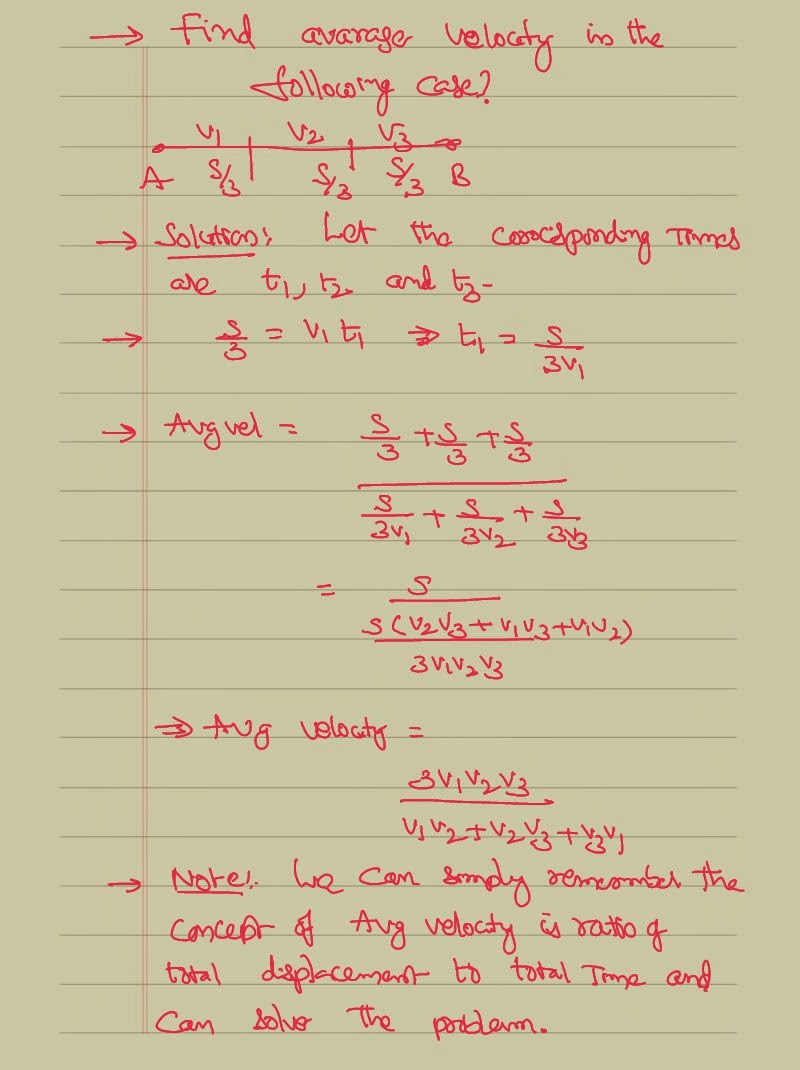 → Find avarage velocity in the
following case?
V₁ V₂ V₃
A S/3 S/3 S/3 B
→ Solution: Let the corresponding Times
are t₁, t₂ and t₃-
→ S/3 = V₁ t₁ ⇒ t₁ = S/3V₁
→ Avg vel = S/3 + S/3 + S/3
S/3V₁ + S/3V₂ + S/3V₃
= S
S(V₂V₃ + V₁V₃ + V₁V₂)
3V₁V₂V₃
⇒ Avg velocity =
3V₁V₂V₃
V₁V₂ + V₂V₃ + V₃V₁
→ Note:. We can simply remember the
concept of Avg velocity is ratio of
total displacement to total Time and
Can solve the problem.